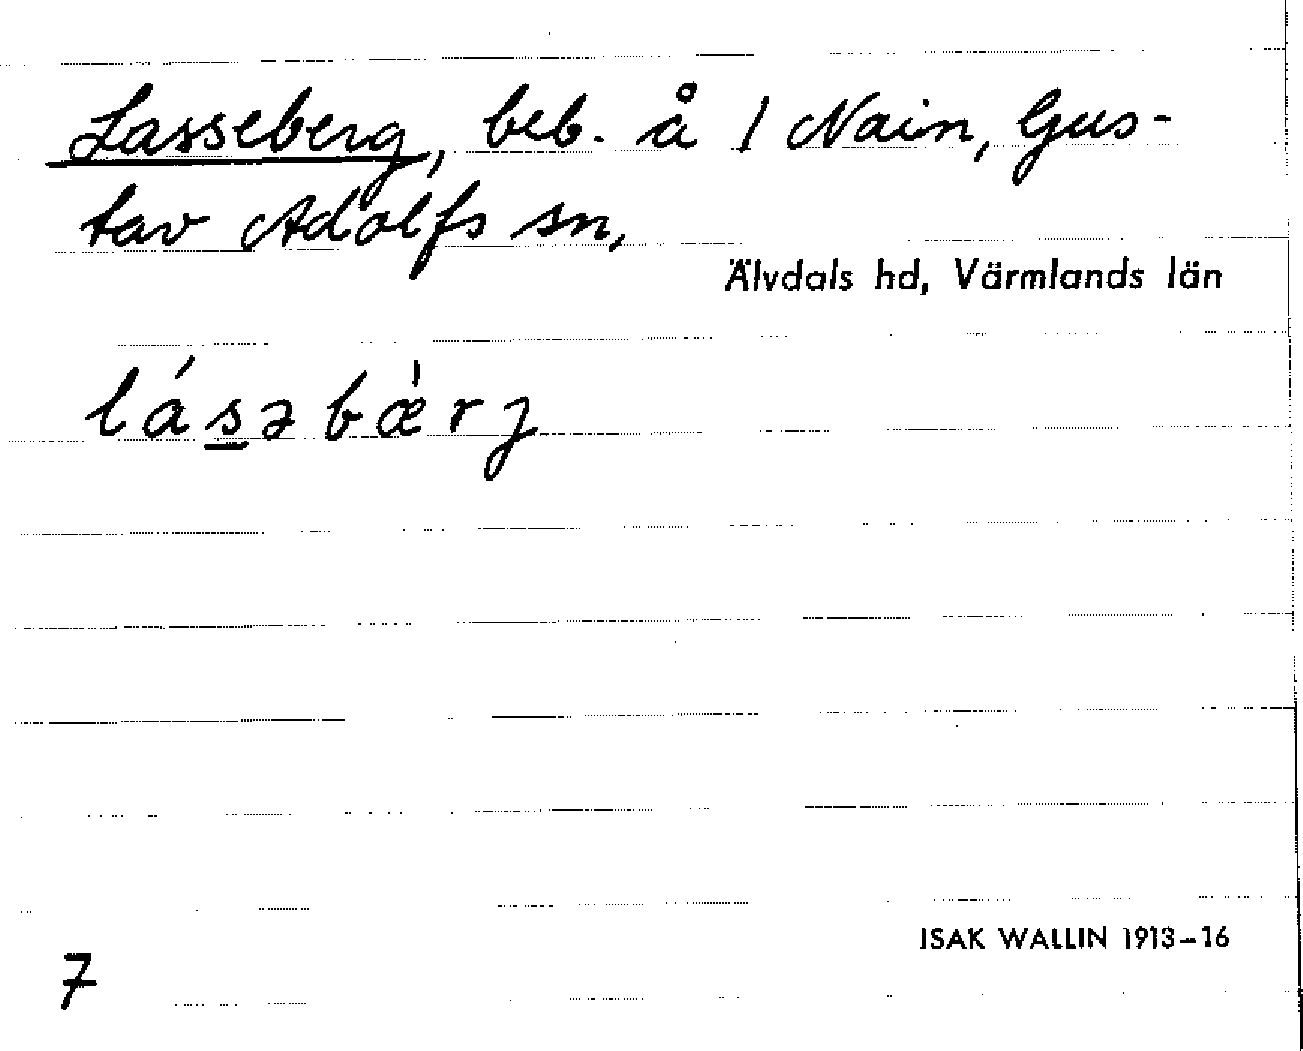 Lasseberg, beb. å 1 Nain, Gus-
tav Adolfs sn,
Älvdals hd, Värmlands län
lásəbæ̀rj
ISAK WALLIN 1913–16
7